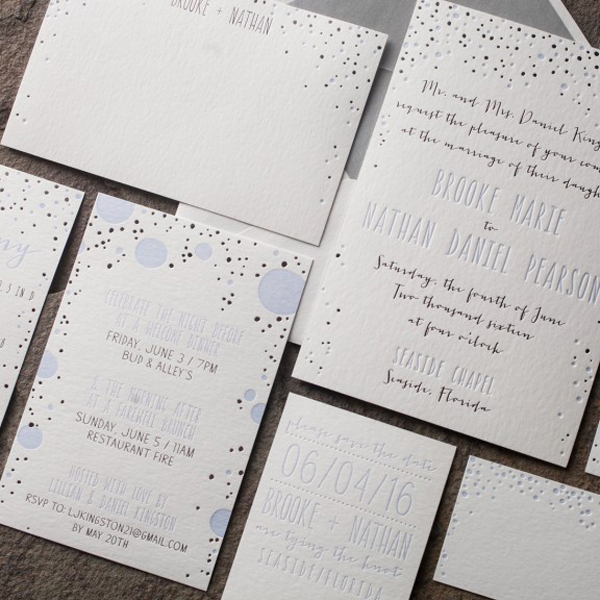 BROOKE + NATHAN
Mr. and Mrs. Daniel
request the pleasure of your
at the marriage of their
BROOKE MARIE
to
NATHAN DANIEL PEARSON
Saturday, the fourth of June
Two thousand sixteen
at four o'clock
SEASIDE CHAPEL
Seaside, Florida
CELEBRATE THE NIGHT BEFORE
AT A WELCOME DINNER
FRIDAY, JUNE 3 / 7PM
BUD & ALLEY'S
& THE MORNING AFTER
AT A FAREWELL BRUNCH
SUNDAY, JUNE 5 / 11AM
RESTAURANT FIRE
HOSTED WITH LOVE BY
LILLIAN & DANIEL KINGSTON
RSVP TO: LJKINGSTON21@GMAIL.COM
BY MAY 20TH
please save the date
06/04/16
BROOKE + NATHAN
are tying the knot
SEASIDE/FLORIDA